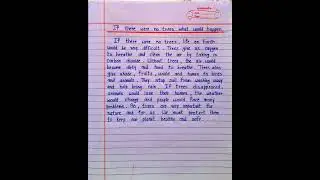 If there were no trees what would happen.
If there were no trees, life on Earth
would be very difficult. Trees give us oxygen
to breathe and clean the air by taking in
carbon dioxide. Without trees, the air would
become dirty and hard to breathe. Trees also
give shade, fruits, woods and homes to birds
and animals. They stop soil from washing away
and help bring rain. If trees disappeared,
animals would lose their homes, the weather
would change and people would face many
problems. So, trees are very important for
nature and for us. We must protect them
to keep our planet healthy and safe.